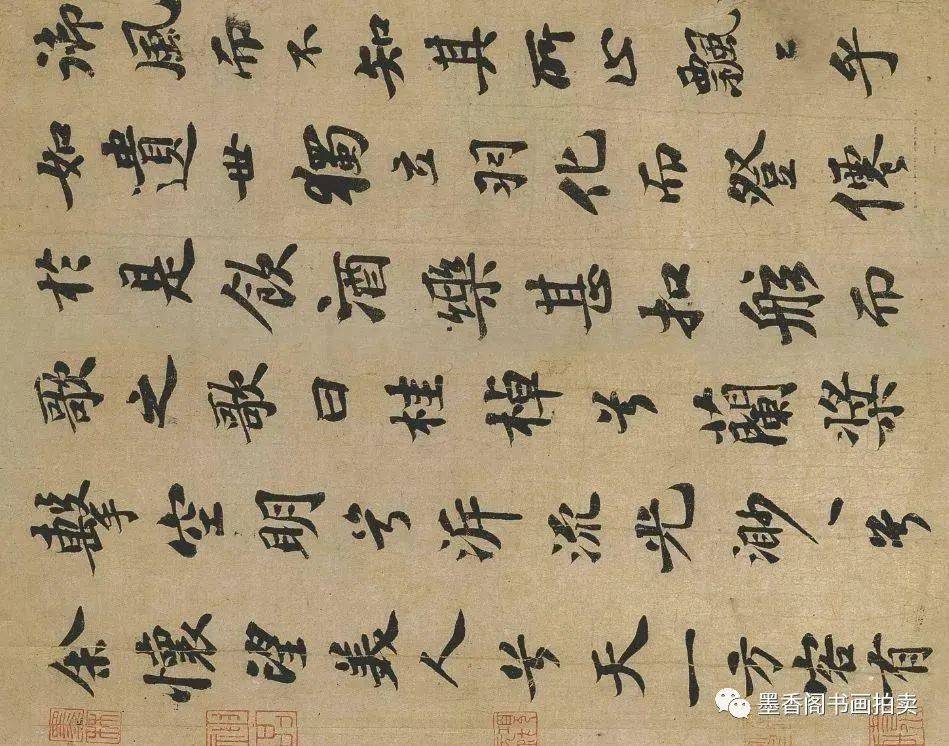 御風而不知其所止飄〻乎
如遺世獨立羽化而登僊
於是飲酒樂甚扣舷而
歌之歌曰桂棹兮蘭槳
擊空明兮泝流光渺〻兮
余懷望美人兮天一方客有
墨香阁书画拍卖